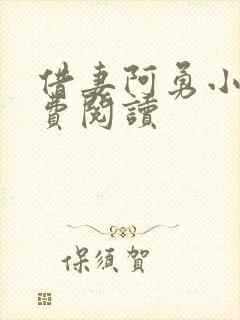 借妻阿勇小
費閱讀
保須賀